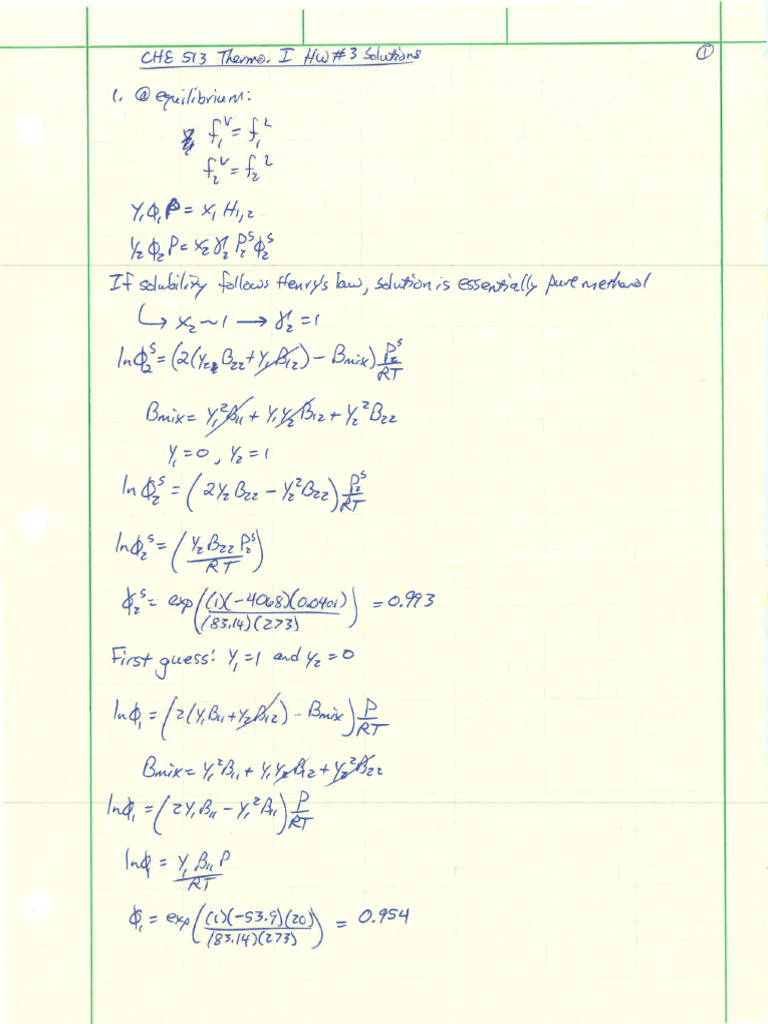 CHE 513 Thermo. I HW#3 Solutions
①
1. @ equilibrium:
f₁ⱽ = f₁ᴸ
f₂ⱽ = f₂ᴸ
y₁ϕ₁P = x₁H₁,₂
y₂ϕ₂P = x₂γ₂P₂ˢϕ₂ˢ
If solubility follows Henry's law, solution is essentially pure methanol
↳ x₂ ~ 1 → γ₂ = 1
lnϕ₂ˢ = (2(y₂B₂₂ + y₁B₁₂) - Bmix) P₂ˢ/RT
Bmix = y₁²B₁₁ + y₁y₂B₁₂ + y₂²B₂₂
y₁ = 0, y₂ = 1
lnϕ₂ˢ = (2y₂B₂₂ - y₂²B₂₂) P₂ˢ/RT
lnϕ₂ˢ = (y₂B₂₂P₂ˢ/RT)
ϕ₂ˢ = exp((1)(-4068)(0.0401)/(83.14)(273)) = 0.993
First guess: y₁ = 1 and y₂ = 0
lnϕ₁ = (2(y₁B₁₁ + y₂B₁₂) - Bmix) P/RT
Bmix = y₁²B₁₁ + y₁y₂B₁₂ + y₂²B₂₂
lnϕ₁ = (2y₁B₁₁ - y₁²B₁₁) P/RT
lnϕ₁ = y₁B₁₁P/RT
ϕ₁ = exp((1)(-53.9)(20)/(83.14)(273)) = 0.954